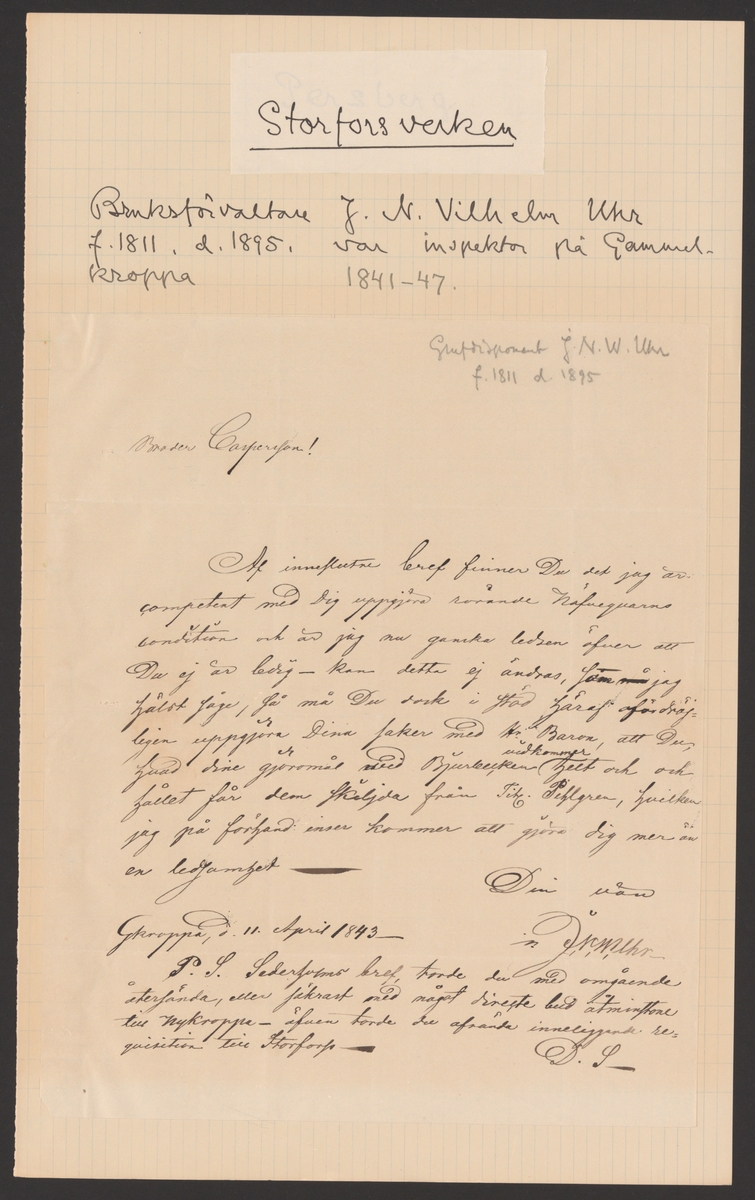 Storforsverken
Bruksförvaltare J. N. Vilhelm Uhr
f. 1811, d. 1895, var inspektor på Gammel-
kroppa 1841–47.
Grufdisponent J. N. W. Uhr
f. 1811 d. 1895
Broder Casperson!
Af inneslutne bref finner Du det jag är
competent med Dig uppgjöra rörande Näfvequarns
condition och är jag nu ganska ledsen öfver att
Du ej är ledig – kan detta ej ändras, jag
hälst säge, så må Du dock i stöd häraf ofördröj=
ligen uppgjöra Dina saker med Hr Baron, att Du,
hvad dine gjöromål vid Bjurbäcken vidkommer, helt och och
hållet får dem skiljda från Tit. Pihlgren, hvilken
jag på förhand inser kommer att gjöra dig mer än
en ledsamhet —
Din vän
Gkroppa, d. 11. April 1843 –
J. N. W. Uhr
P. S. bref, torde du med omgående
återsända, eller säkrast med något directe bud åtminstone
till Nykroppa – äfven torde du afsända inneliggande re=
quisition till Storfors —
D. S –